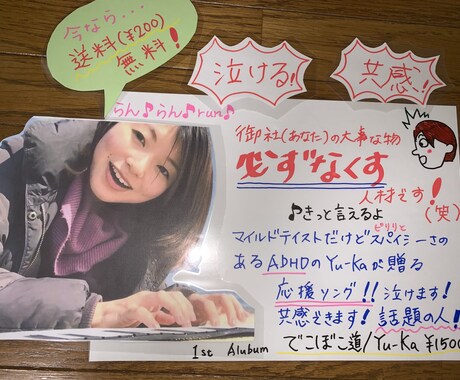 今なら・・・
送料(¥200)
無料！
泣ける！
共感！
らん♪らん♪run♪
御社(あなた)の大事な物
必ずなくす
人材です！
(笑)
♪きっと言えるよ
マイルドテイストだけどスパイシーさの
ピリリと
あるADHDのYu-Kaが贈る
応援ソング!!泣けます！
共感できます！話題の人！
でこぼこ道/Yu-Ka ¥1500
1st Alubum